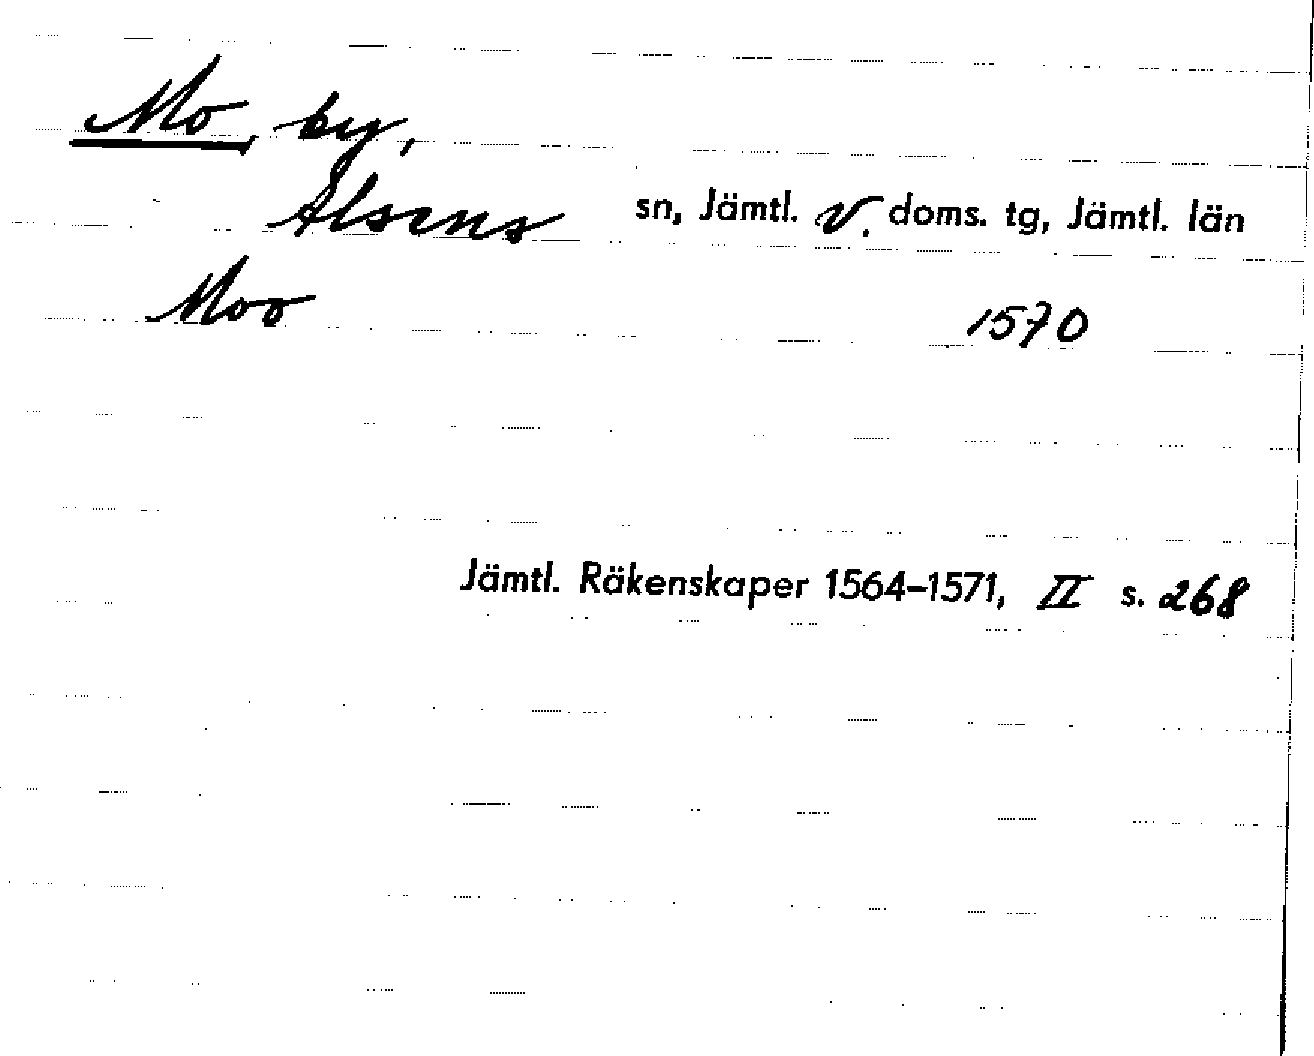 Mo, by,
Alsens sn, Jämtl. v. doms. tg, Jämtl. län
Moo 1570
Jämtl. Räkenskaper 1564–1571, II s. 268